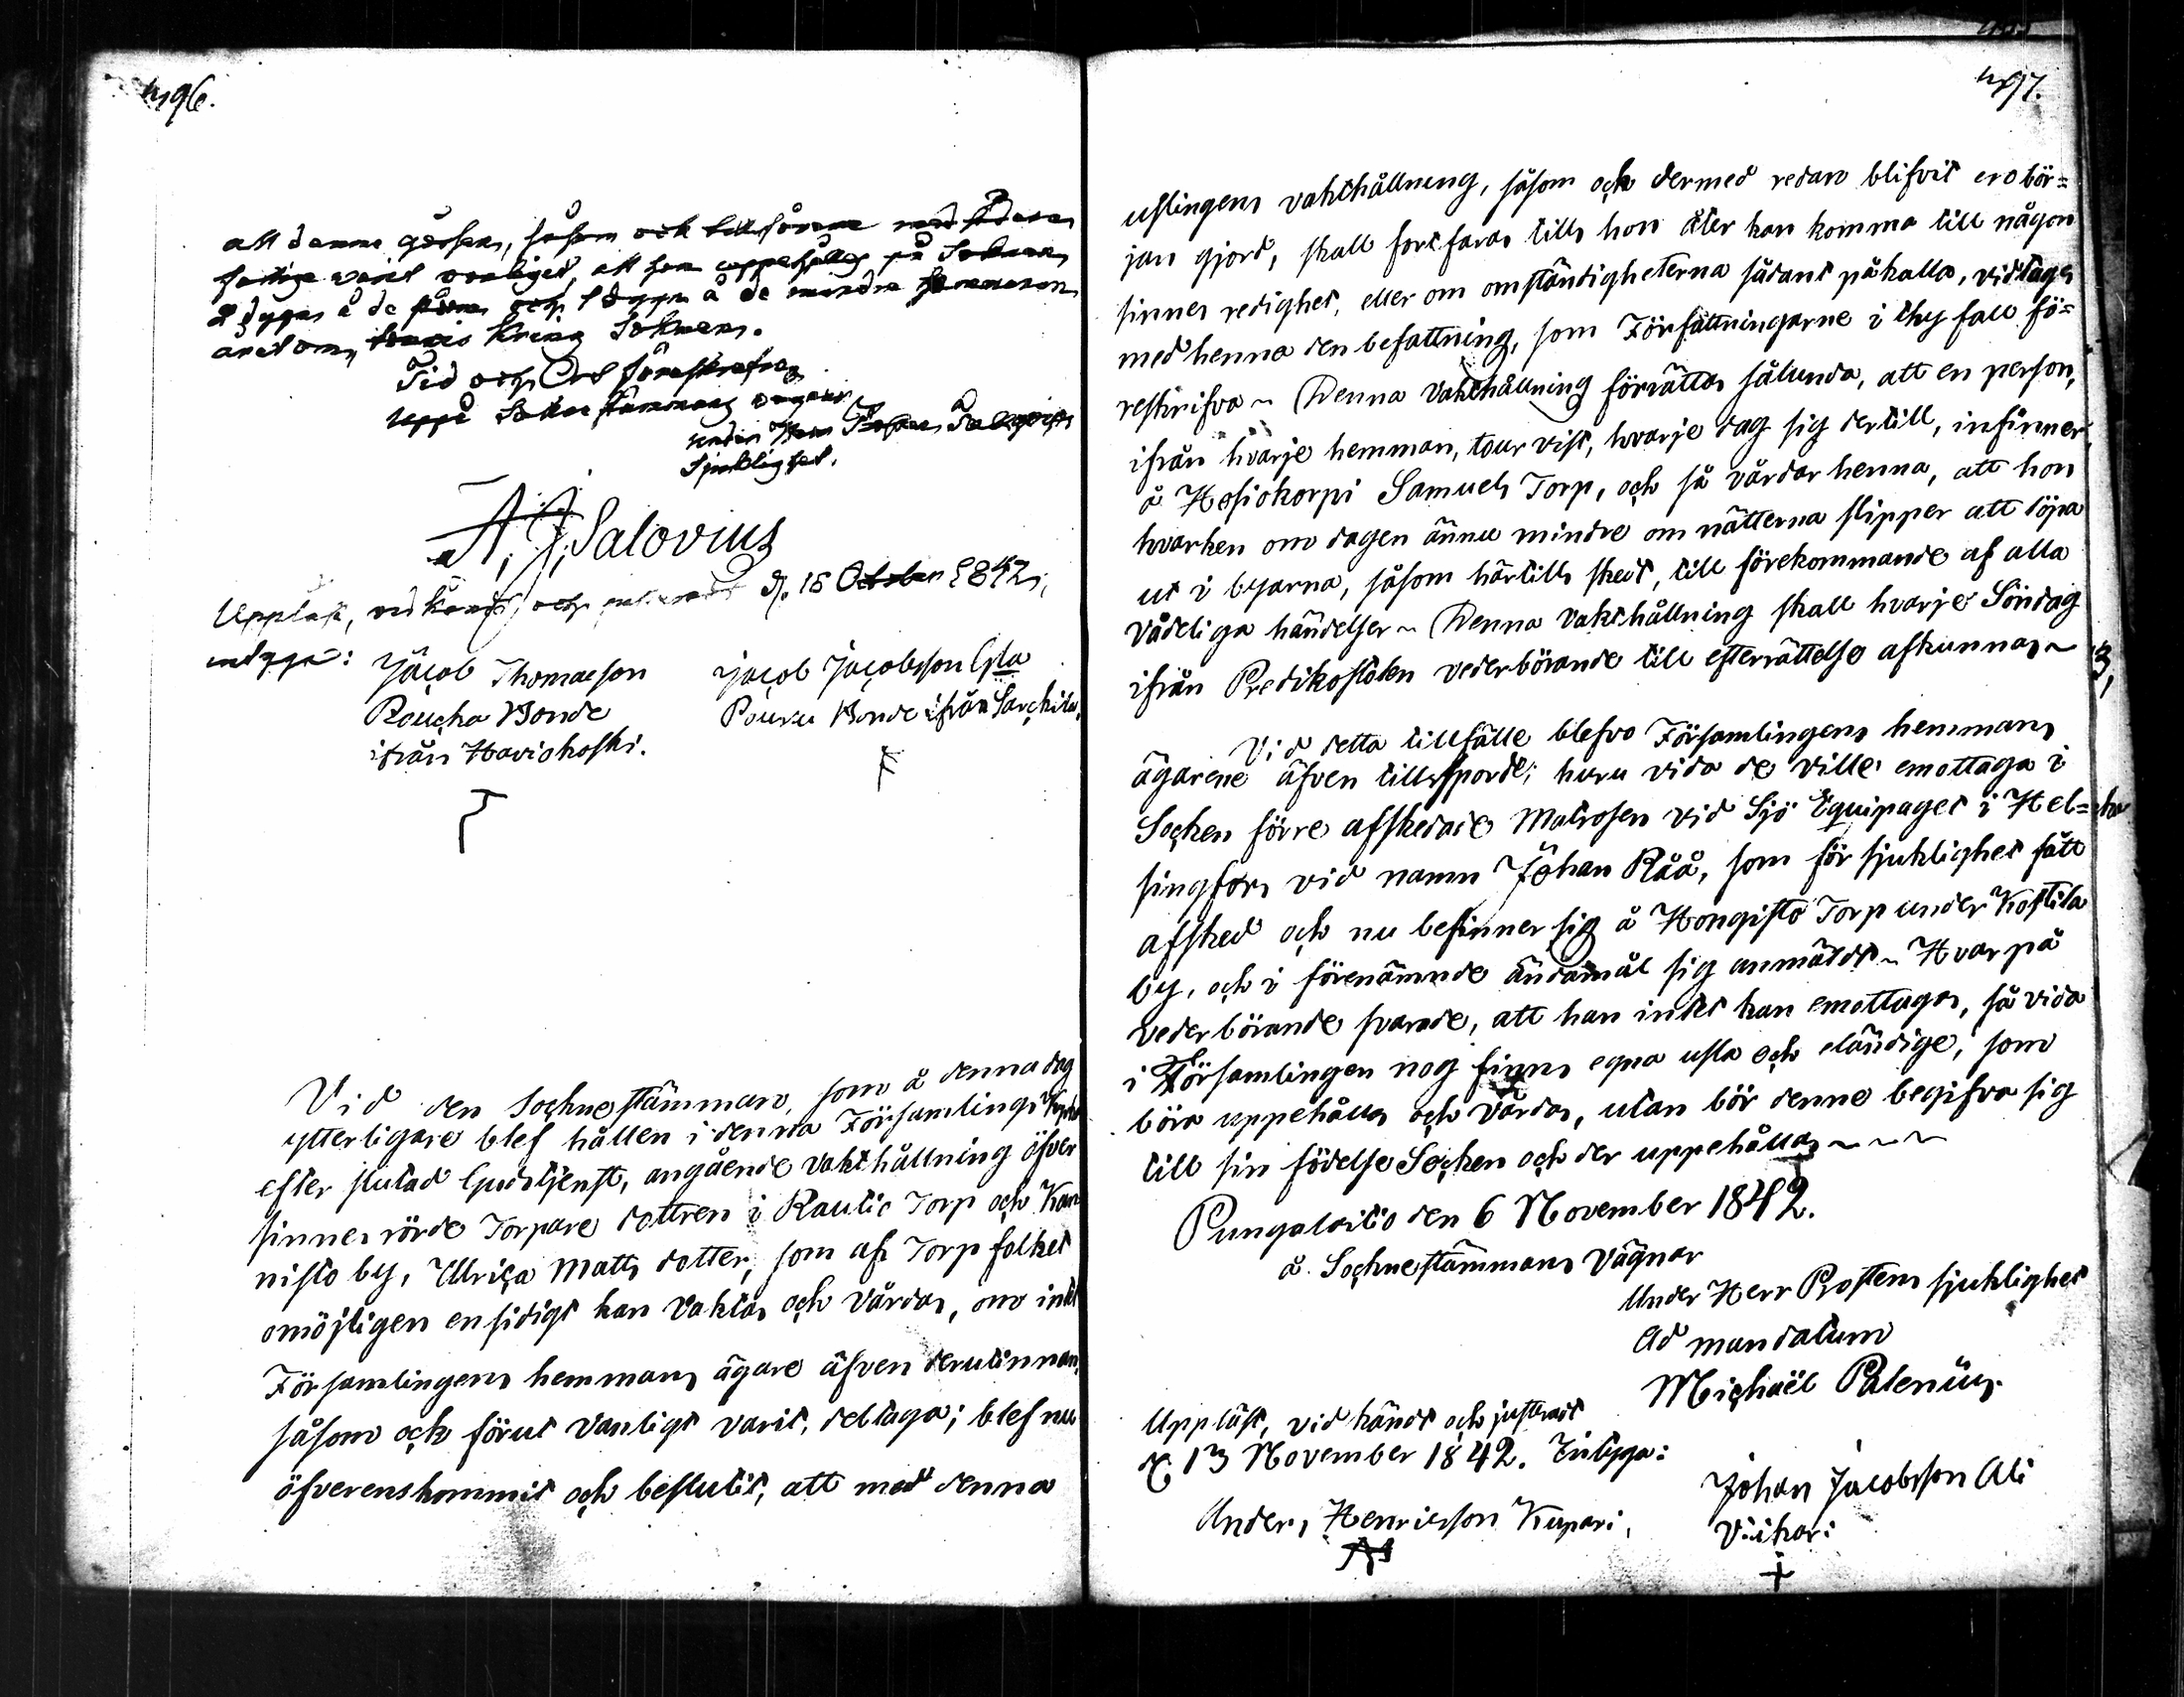 496.
att denna gossen, såsom och tillförene med
fattige varit vanliget, att han uppehålles på Soknen,
2 dygn å de större och 1 dygn å de mindre hemmanen
året om, kring Soknen.
Tid och Ort föreskrefne
uppå Sokne stämmans vägnar
under Herr
Sjuklighet.
A. J. Salovius
Uppläst, vidkändt och justeradt d. 16 October 1842,
intyga:
Jacob Thomaeson
Roucha Bonde
ifrån Haviokoski.
Jacob Jacobsson Esla
Pouru Bonde ifrån Sarkila,
Vid den Sockne stämman, som å denna dag
ytterligare blef hållen i denna Församlings Kyrka
efter slutad Gudstjenst, angående vakthållning öfver
sinnes rörde Torpare dottren i Rautio Torp och Kan
nisto by, Ulrica Matts dotter, som af Torp folket
omöjligen ensidigt kan vaktas och vårdas, om intet
Församlingens hemmans ägare äfven derutinnan,
såsom ock förut vanligt varit, deltaga; blef nu
öfverenskommit och beslutit, att med denna
497.
uslingens vakthållning, såsom ock dermed redan blifvit en bör=
jan gjord, skall fortfaras tills hon åter kan komma till någon
sinnes redighet, eller om omständigheterna sådant påkalla, vidtages
med henna den befattning, som Författningarne i thy fall fö=
reskrifva ~ Denna vakthållning förrättas sålunda, att en person,
ifrån hvarje hemman, tour vist, hvarje dag sig dertill, infinner
å Hesiokorpi Samuels Torp, och så vårdar henna, att hon
hvarken om dagen ännu mindre om nätterna slipper att löpa
ut i byarna, såsom härtills skett, till förekommande af alla
vådeliga händelser ~ Denna vakthållning skall hvarje Söndag
ifrån Predikostolen vederbörande till efterrättelse afkunnas ~
Vid detta tillfälle blefvo Församlingens hemmans
ägarene äfven tillsporde; huru vida de ville emottaga i
Socken förre afskedade Matrosen vid Sjö Equipaget i Hel=
singfors vid namn Johan Råå, som för sjuklighet fått
afsked och nu befinner sig å Hongisto Torp under Kostila
by, och i förenämnde ändamål sig anmäldt ~ Hvarpå
vederbörande svarade, att han intet kan emottagas, så vida
i Församlingen nog finns egna usla och eländige, som
böra uppehållas och vårdas, utan bör denne begifva sig
till sin födelse Socken och der uppehållas ~ ~ ~
Pungalaitio den 6 November 1842.
å Sockne stämmans vägnar
Under Herr Prostens sjuklighet
Ad mandatum
Michaël Palenius.
Uppläst, vidkändt och justeradt
d. 13 November 1842. Intyga:
Anders Henricsson Kupari,
Johan Jacobsson Ali
Viikari